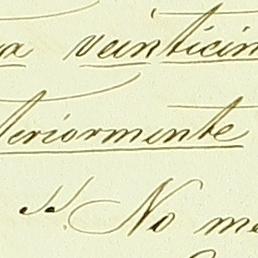 veinticin
teriormente
No me